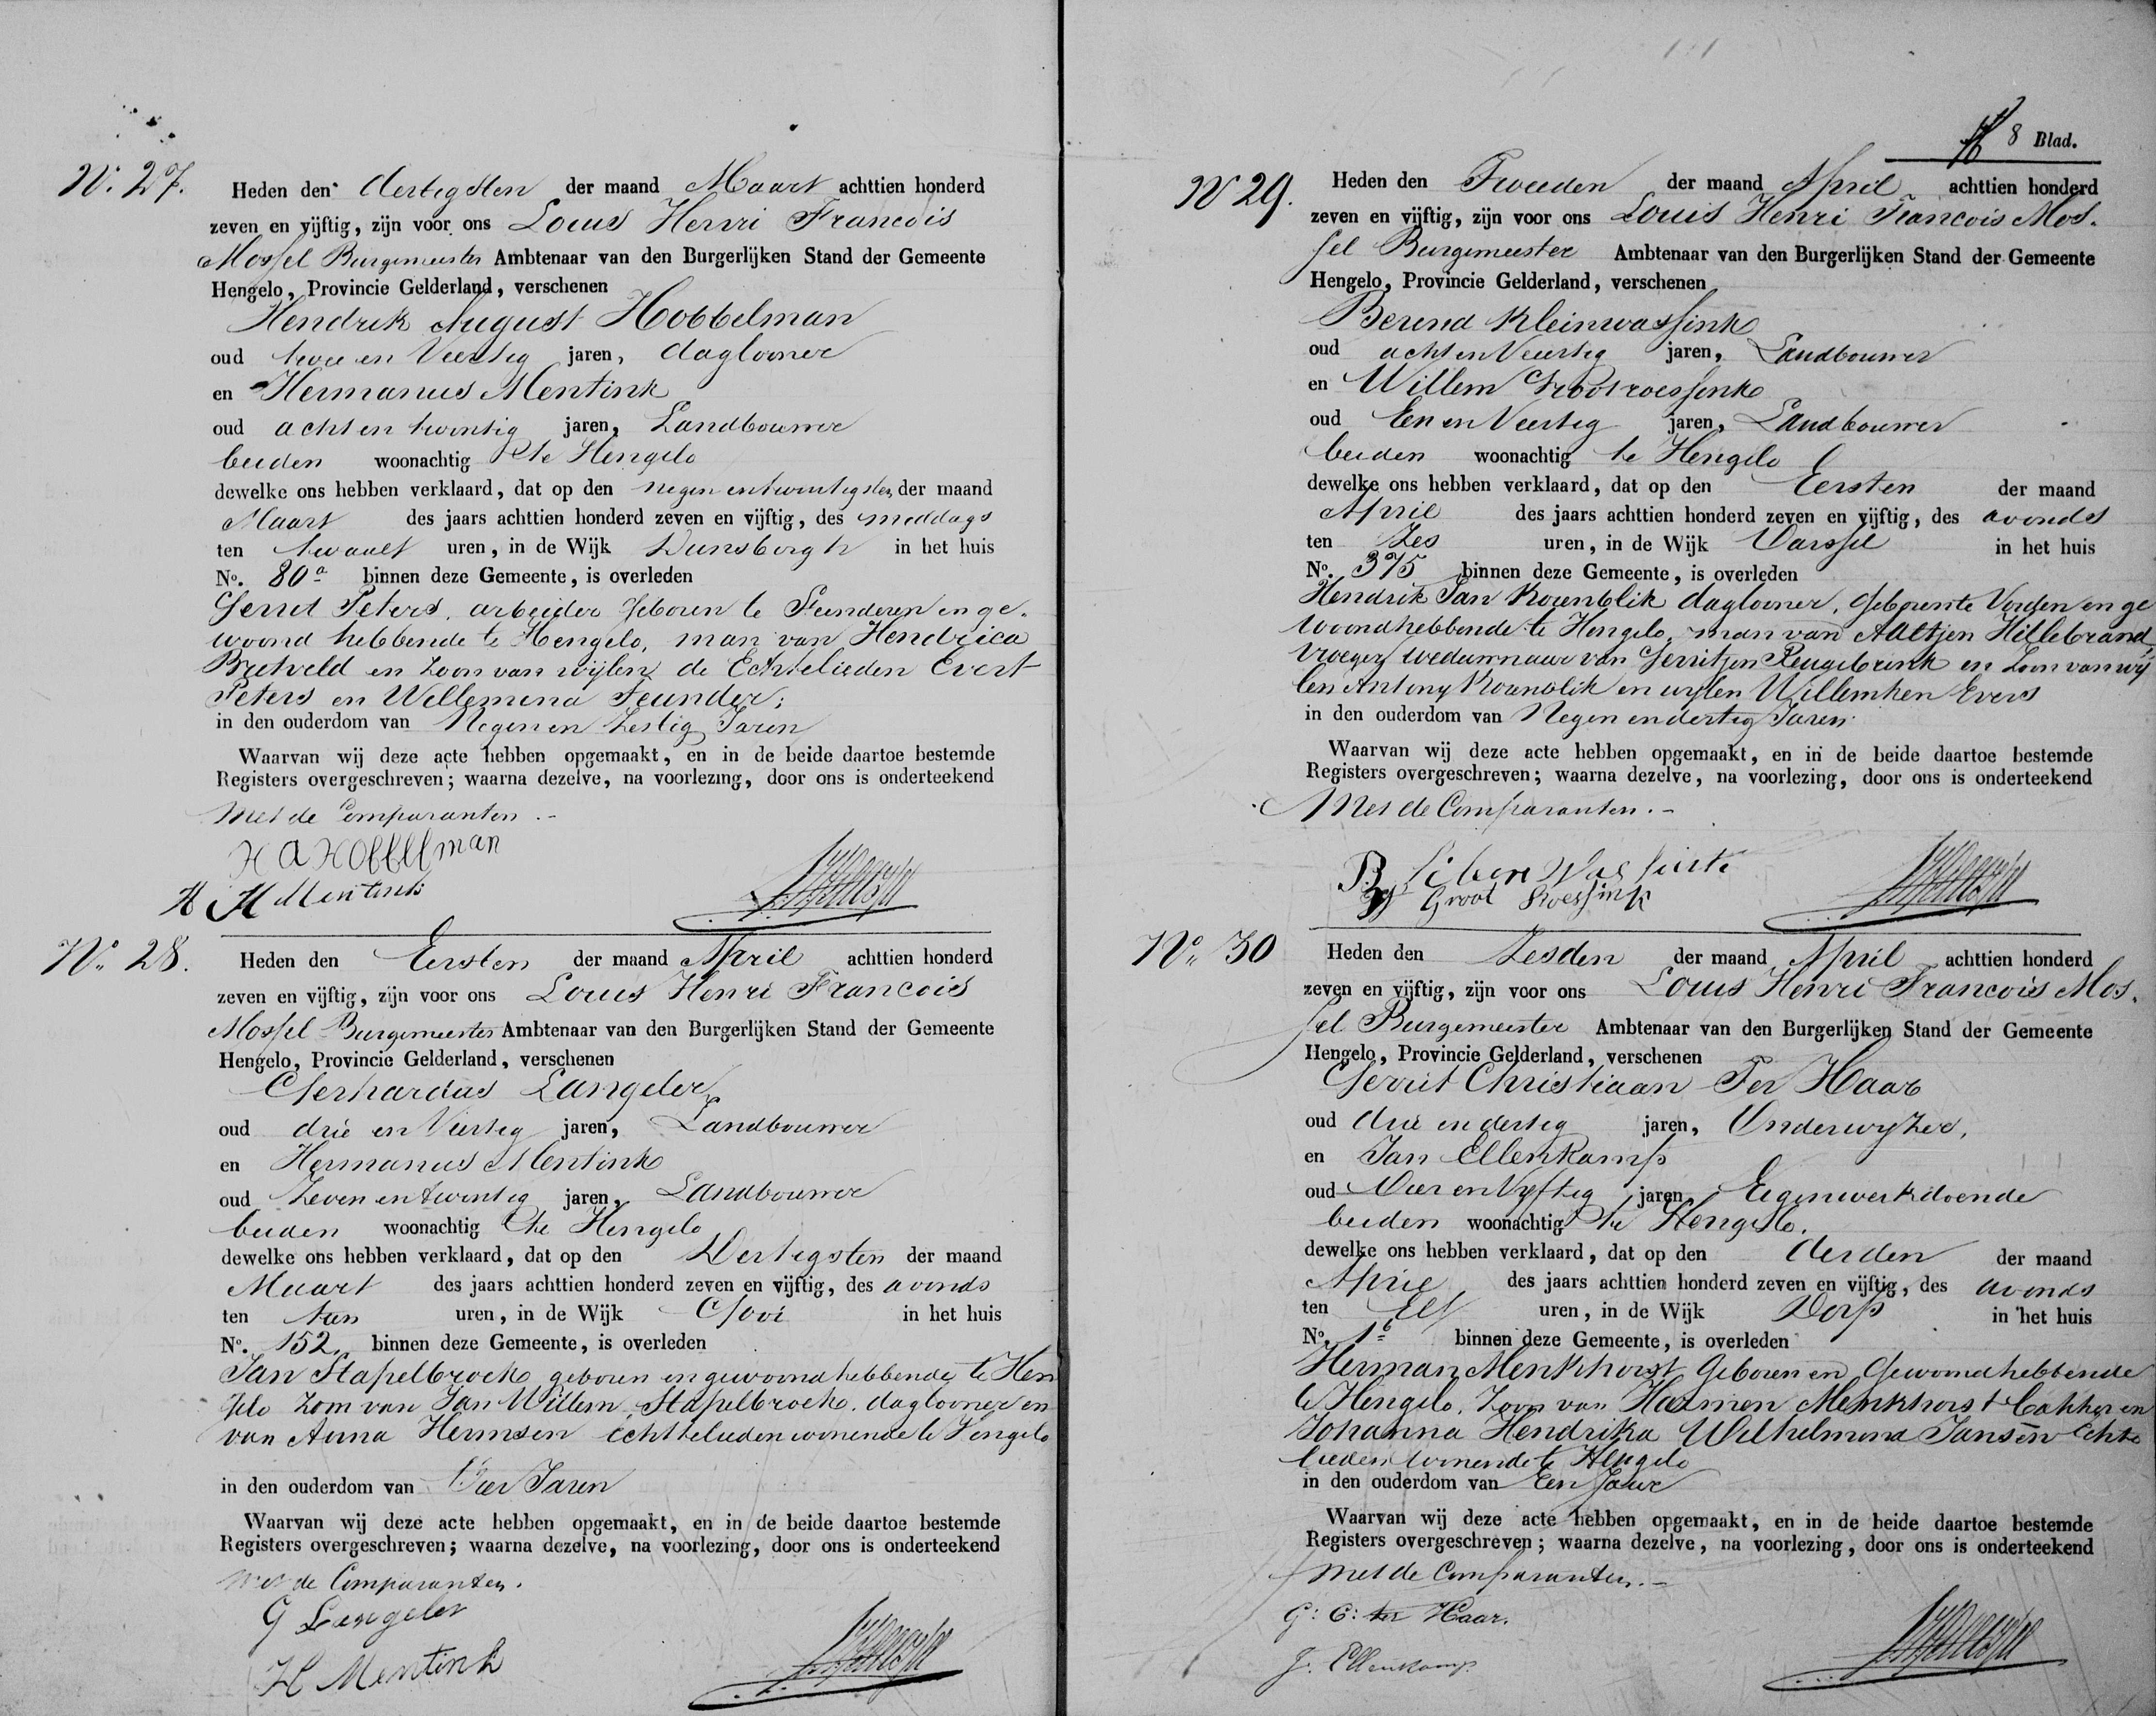 N. 27.
Heden den dertigsten der maand Maart achttien honderd
zeven en vijftig, zijn voor ons Louis Henri Francois
Mossel Burgemeester Ambtenaar van den Burgerlijken Stand der Gemeente
Hengelo, Provincie Gelderland, verschenen
Hendrik August Hobbelman
oud twee en Veertig jaren, daglooner
en Hermanus Mentink
oud acht en twintig jaren, Landbouwer
beiden woonachtig te Hengelo
dewelke ons hebben verklaard, dat op den negen en twintigsten der maand
Maart des jaars achttien honderd zeven en vijftig, des middags
ten twaalf uren, in de Wijk Dunsborgh in het huis
No. 80a binnen deze Gemeente, is overleden
Gerrit Peters, arbeider geboren te Steenderen en ge-
woond hebbende te Hengelo, man van Hendrica
Bretveld en zoon van wijlen de Echtelieden Evert
Peters en Willemina Teunder;
in den ouderdom van Negen en Zestig Jaren
Waarvan wij deze acte hebben opgemaakt, en in de beide daartoe bestemde
Registers overgeschreven; waarna dezelve, na voorlezing, door ons is onderteekend
Met de Comparanten.-
H A Hobbelman
H Mentink
N. 28.
Heden den Eersten der maand April achttien honderd
zeven en vijftig, zijn voor ons Louis Henri Francois
Mossel Burgemeester Ambtenaar van den Burgerlijken Stand der Gemeente
Hengelo, Provincie Gelderland, verschenen
Gerhardus Langeler
oud drie en Veertig jaren, Landbouwer
en Hermanus Mentink
oud Zeven en twintig jaren, Landbouwer
beiden woonachtig te Hengelo
dewelke ons hebben verklaard, dat op den Dertigsten der maand
Maart des jaars achttien honderd zeven en vijftig, des avonds
ten tien uren, in de Wijk Gooi in het huis
No. 152 binnen deze Gemeente, is overleden
Jan Stapelbroek geboren en gewoond hebbende te Hen
gelo zoon van Jan Willem Stapelbroek, daglooner en
van Anna Hermsen echtelieden wonende te Hengelo
in den ouderdom van Vier Jaren
Waarvan wij deze acte hebben opgemaakt, en in de beide daartoe bestemde
Registers overgeschreven; waarna dezelve, na voorlezing, door ons is onderteekend
Met de Comparanten.
G Langeler
H Mentink
8 Blad.
N 29.
Heden den Tweeden der maand April achttien honderd
zeven en vijftig, zijn voor ons Louis Henri Francois Mos-
sel Burgemeester Ambtenaar van den Burgerlijken Stand der Gemeente
Hengelo, Provincie Gelderland, verschenen
Berend Kleinwassink
oud acht en Veertig jaren, Landbouwer
en Willem Grootroessink
oud Een en Veertig jaren, Landbouwer
beiden woonachtig te Hengelo
dewelke ons hebben verklaard, dat op den Eersten der maand
April des jaars achttien honderd zeven en vijftig, des avonds
ten Zes uren, in de Wijk Varssel in het huis
No. 375 binnen deze Gemeente, is overleden
Hendrik Jan Rozenblik daglooner, geboren te Vorden en ge
woond hebbende te Hengelo, man van Aaltjen Hillebrand,
vroeger weduwnaar van Gerritjen Reugebrink en zoon van wij
len Antony Rozenblik en wylen Willemken Evers
in den ouderdom van Negen en dertig Jaren.
Waarvan wij deze acte hebben opgemaakt, en in de beide daartoe bestemde
Registers overgeschreven; waarna dezelve, na voorlezing, door ons is onderteekend
Met de Comparanten.-
Groot Roessink
No. 30
Heden den Zesden der maand April achttien honderd
zeven en vijftig, zijn voor ons Louis Henri Francois Mos-
sel Burgemeester Ambtenaar van den Burgerlijken Stand der Gemeente
Hengelo, Provincie Gelderland, verschenen
Gerrit Christiaan Ter Haar
oud drie en dertig jaren, Onderwyzer,
en Jan Ellenkamp
oud Vier en Vyftig jaren, Eigenwerkdoende
beiden woonachtig te Hengelo.
dewelke ons hebben verklaard, dat op den derden der maand
April des jaars achttien honderd zeven en vijftig, des avonds
ten Elf uren, in de Wijk Dorp in het huis
No. 1b binnen deze Gemeente, is overleden
Herman Menkhorst Geboren en Gewoond hebbende
te Hengelo, Zoon van Harmen Menkhorst bakker en
Johanna Hendrika Wilhelmina Jansen Echte
lieden wonende te Hengelo
in den ouderdom van Een Jaar
Waarvan wij deze acte hebben opgemaakt, en in de beide daartoe bestemde
Registers overgeschreven; waarna dezelve, na voorlezing, door ons is onderteekend
Met de Comparanten.-
G: C: ter Haar.
J. Ellenkamp